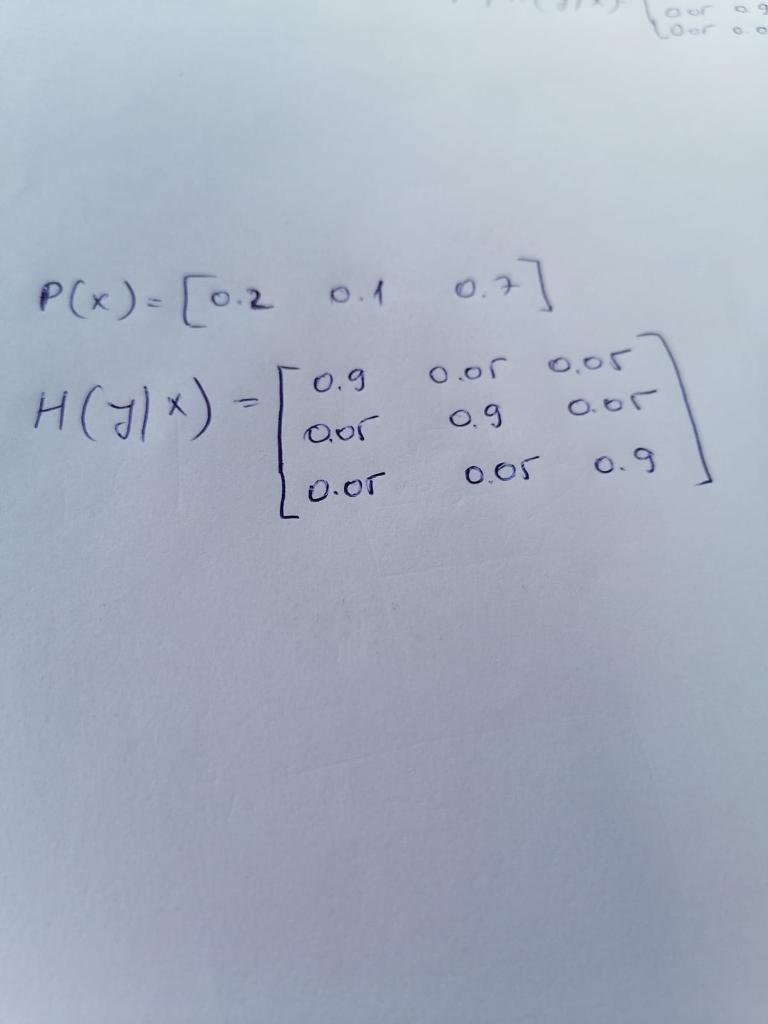 0.05 0.9
0.05 0.0
P(x) = [0.2 0.1 0.7]
H(y|x) = [0.9 0.05 0.05
0.05 0.9 0.05
0.05 0.05 0.9]